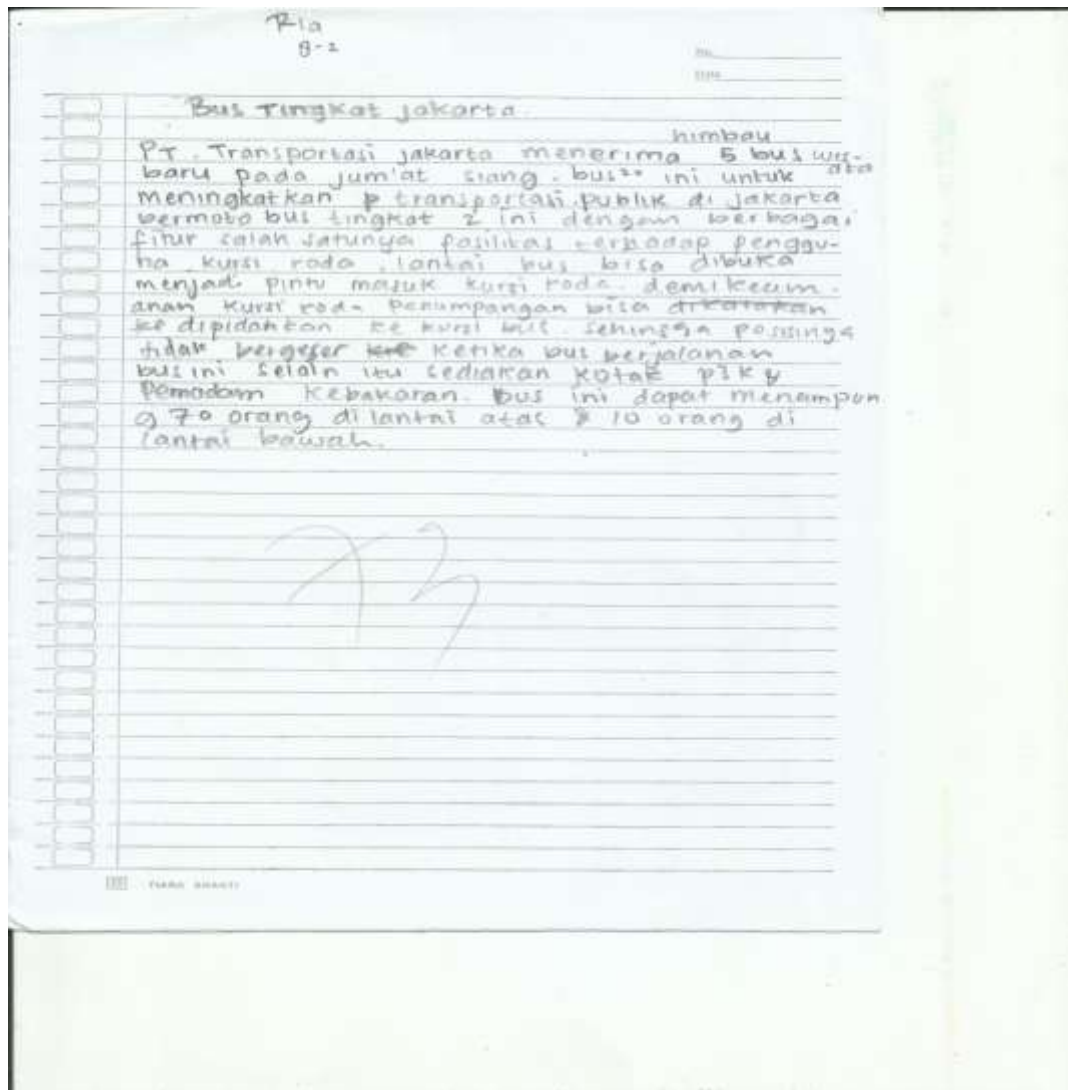 Ria
8-2
No
Date
Bus Tingkat jakarta.
himbau
PT. Transportasi jakarta menerima 5 bus
baru pada jum'at siang. bus²ⁿ ini untuk
meningkatkan p transportasi publik di jakarta
bermoto bus tingkat 2 ini dengan berbagai
fitur salah satunya pasilitas terhadap penggu-
na kursi roda. lantai bus bisa dibuka
menjadi pintu masuk kursi roda. demi keam.
anan kursi roda penumpangan bisa dikatakan
ke dipidahkan ke kursi bus. sehingga possinga
tidak bergeser ketika bus berjalanan
bus ini selain itu sediakan kotak p3k &
pemadam kebakaran. bus ini dapat menampun
g 70 orang di lantai atas & 10 orang di
lantai bawah.
73